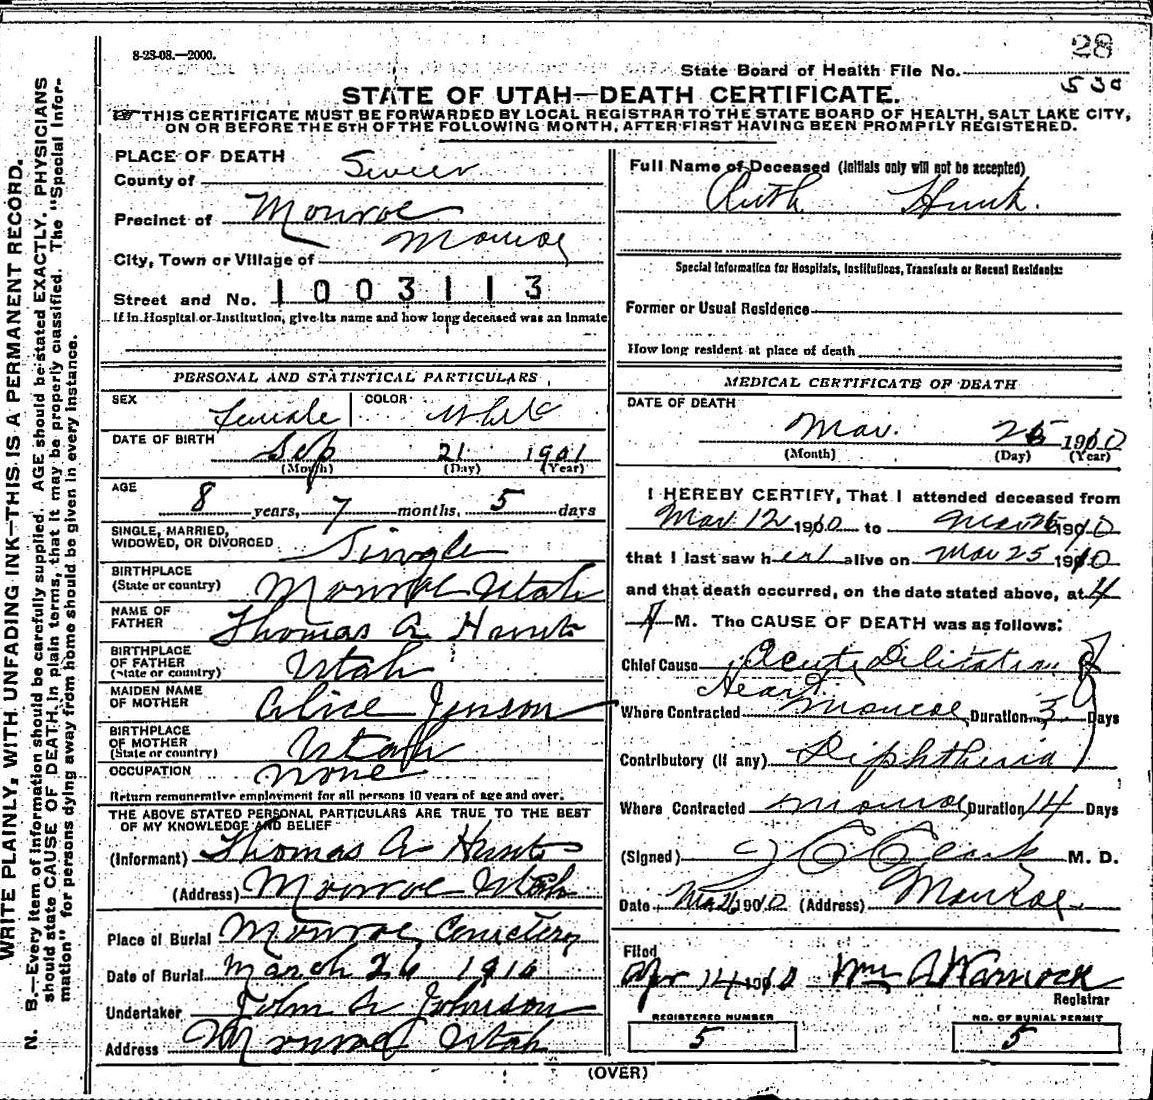 8-23-08.—2000.
28
State Board of Health File No.
530
STATE OF UTAH—DEATH CERTIFICATE.
☞ THIS CERTIFICATE MUST BE FORWARDED BY LOCAL REGISTRAR TO THE STATE BOARD OF HEALTH, SALT LAKE CITY,
ON OR BEFORE THE 5TH OF THE FOLLOWING MONTH, AFTER FIRST HAVING BEEN PROMPTLY REGISTERED.
PLACE OF DEATH
County of Sevier
Precinct of Monroe
Monroe
City, Town or Village of
Street and No. 1003113
If in Hospital or Institution, give its name and how long deceased was an inmate
PERSONAL AND STATISTICAL PARTICULARS
SEX Female COLOR White
DATE OF BIRTH Sep 21 1901
(Month) (Day) (Year)
AGE 8 years, 7 months, 5 days
SINGLE, MARRIED,
WIDOWED, OR DIVORCED Single
BIRTHPLACE
(State or country) Monroe Utah
NAME OF
FATHER Thomas A Hunt
BIRTHPLACE
OF FATHER
(State or country) Utah
MAIDEN NAME
OF MOTHER Alice Jenson
BIRTHPLACE
OF MOTHER
(State or country) Utah
OCCUPATION none
Return remunerative employment for all persons 10 years of age and over.
THE ABOVE STATED PERSONAL PARTICULARS ARE TRUE TO THE BEST
OF MY KNOWLEDGE AND BELIEF
(Informant) Thomas A Hunt
(Address) Monroe Utah
Place of Burial Monroe Cemetery
Date of Burial March 26 1910
Undertaker John A Johnson
Address Monroe Utah
Full Name of Deceased (Initials only will not be accepted)
Ruth Hunt.
Special Information for Hospitals, Institutions, Transients or Recent Residents:
Former or Usual Residence
How long resident at place of death
MEDICAL CERTIFICATE OF DEATH
DATE OF DEATH
Mar. 1910
(Month) (Day) (Year)
I HEREBY CERTIFY, That I attended deceased from
Mar 12 1910 to 1910
that I last saw her alive on Mar 25 1910
and that death occurred, on the date stated above, at 4
A M. The CAUSE OF DEATH was as follows:
Chief Cause Acute Dilitation of
Heart.
Where Contracted Monroe Duration 3 Days
Contributory (if any) Diphtheria
Where Contracted Monroe Duration 14 Days
(Signed) M. D.
Date Mar 26 1910 (Address) Monroe
Filed
Apr 14 1910 Wm A Warnock
Registrar
REGISTERED NUMBER
5
NO. OF BURIAL PERMIT
5
(OVER)
WRITE PLAINLY, WITH UNFADING INK—THIS IS A PERMANENT RECORD.
N. B.—Every item of information should be carefully supplied. AGE should be stated EXACTLY. PHYSICIANS
should state CAUSE OF DEATH in plain terms, that it may be properly classified. The "Special Infor-
mation" for persons dying away from home should be given in every instance.